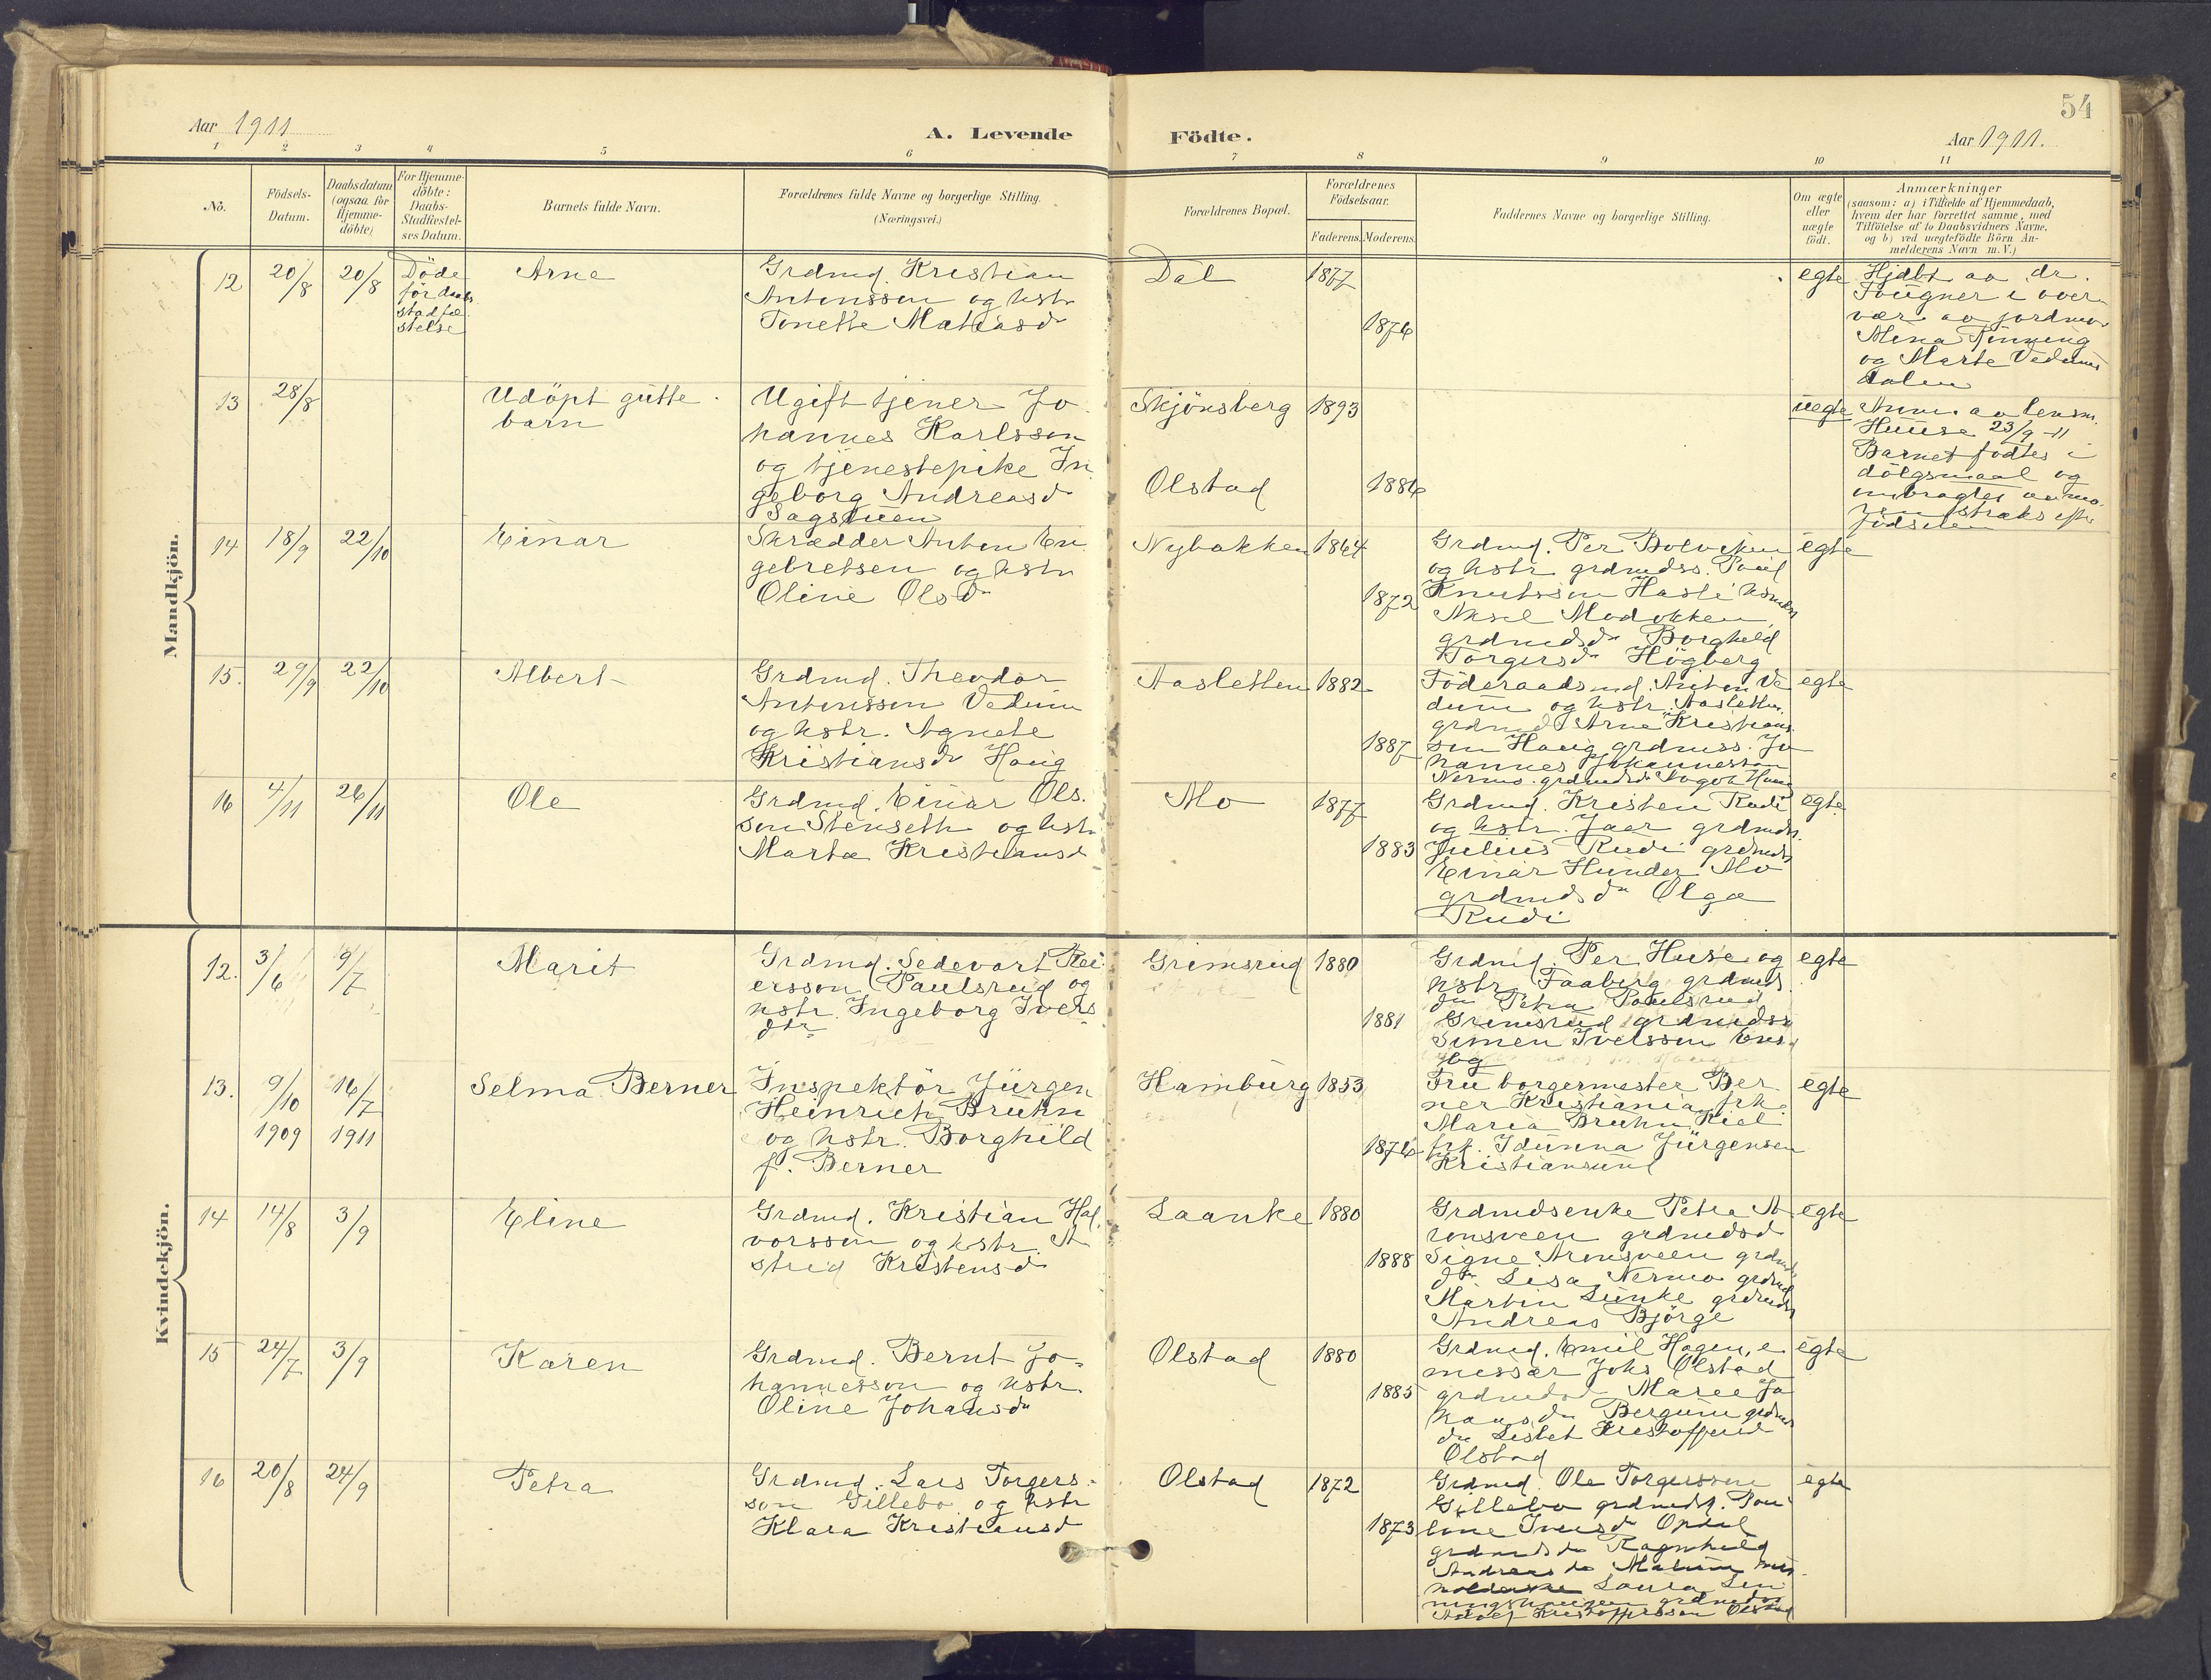 54
Aar 1911
A. Levende
Födte.
Aar 1911.
1 2 3 4 5 6 7 8 9 10 11
No.
Födsels-
Datum.
Daabsdatum
(ogsaa for
Hjemme-
döbte)
For Hjemme-
döbte:
Daabs-
Stadfæstel-
ses Datum.
Barnets fulde Navn.
Forældrenes fulde Navne og borgerlige Stilling.
(Næringsvei.)
Forældrenes Bopæl.
Forældrenes
Födselsaar.
Faderens. Moderens.
Faddernes Navne og borgerlige Stilling.
Om ægte
eller
uægte
födt.
Anmærkninger
(saasom: a) i Tilfælde af Hjemmedaab,
hvem der har forrettet samme, med
Tilföielse af to Daabsvidners Navne,
og b) ved uægtefödte Börn An-
melderens Navn m. V.)
Mandkjön.
12 20/8 20/8
Döde
för daabs
stadfæ
stelse
Arne
Grdmd. Kristian
Antonsson og hstr
Tonette Matiasdr
Dal
1877
1876
egte
Hjdbt av dr.
Tougner i over
vær av jordmor
Mina Rönning
og Marte Vedums
dalen
13 28/8
Udöpt gutte
barn
Ugift tjener Jo
hannes Karlsson
og tjenestepike In
geborg Andreasdr
Sagstuen
Skjönsberg 1893
Olstad 1886
uegte
Anm. av lensm.
Huuse 23/9 -11
Barnet födtes i
dölgsmaal og
ombragtes av mo
ren straks efter
födselen
14 18/9 22/10
Einar
Skrædder Anton En
gebretsen og hstr
Oline Olsdr
Nybakken 1864
1872
Grdmd. Per Bolviken
og hstr grdmdss. Poul
Knutsson Hasle
Aksel Modokken
grdmdsdr Borghild
Torgersdr Högberg
egte
15. 29/9 22/10
Albert
Grdmd. Theodor
Antonsson Vedum
og hstr. Agnete
Kristiansdr Haug
Aasletten 1882
1887
Föderaadsmd. Anton Ve
dum og hstr. Aasletten.
grdmd Arne Kristians
son Haug grdmss. Jo
hannes Johannesson
Nermo. grdmdsdr
egte
16 4/11 26/11
Ole
Grdmd. Einar Ols.
son Stenseth og hstr
Marta Kristiansdr
Mo
1877
1883
Grdmd. Kristen Rudi
og hstr. Jaer grdmds.
Julius Rudi grdmds
Einar Hunder Mo
grdmdsdr Olga
Rudi
egte
Kvindekjön.
12. 3/6 9/7
Marit
Grdmd. Sedevart Rei
ersson Paulsrud og
hstr. Ingeborg Ivers
dtr
Grimsrud 1880
1881
Grdmd. Per Huse og
hstr Faaberg grdmds
dr Petra Paulsrud
Grimsrud grdmdss
Simen Iversson Ens
bg
egte
13. 9/10 1909 16/7 1911
Selma Berner
Inspektör Jürgen
Heinrich Bruhn
og hstr. Borghild
f. Berner
Hamburg 1853
1876
Fru borgermester Ber
ner Kristiania, frk.
Maria Bruhn Kiel
frk. Idunna Jürgensen
Kristiansund
egte
14 14/8 3/9
Eline
Grdmd. Kristian Hal
vorsson og hstr. A
strid Kristensdr
Laanke 1880
1888
Grdmdsenke Petra A
ronsveen grdmdsd
Signe Aronsveen grdmds
dtr. Lisa Nermo grdmds
Martin Lunke grdmds
Andreas Björge
egte
15 24/7 3/9
Karen
Grdmd. Bernt Jo-
hannesson og hstr.
Oline Johansdr
Olstad 1880
1885
Grdmd. Emil Hagen, e
missær Johs Olstad
grdmdsd Maree Jo
hansdr Bergum grdmds
dr Lisbet Kristoffersd
Olstad
egte
16 20/8 24/9
Petra
Grdmd. Lars Torgers-
son Gillebo og hstr
Klara Kristiansdr
Olstad 1872
1873
Grdmd Ole Torgersson
Gillebo grdmdsf. Pou
line Iversdr Opdal
grdmdsdr Ragnhild
Andreasdr Malum
Laura Lin
grdmdss
Kristoffersson Olstad
egte